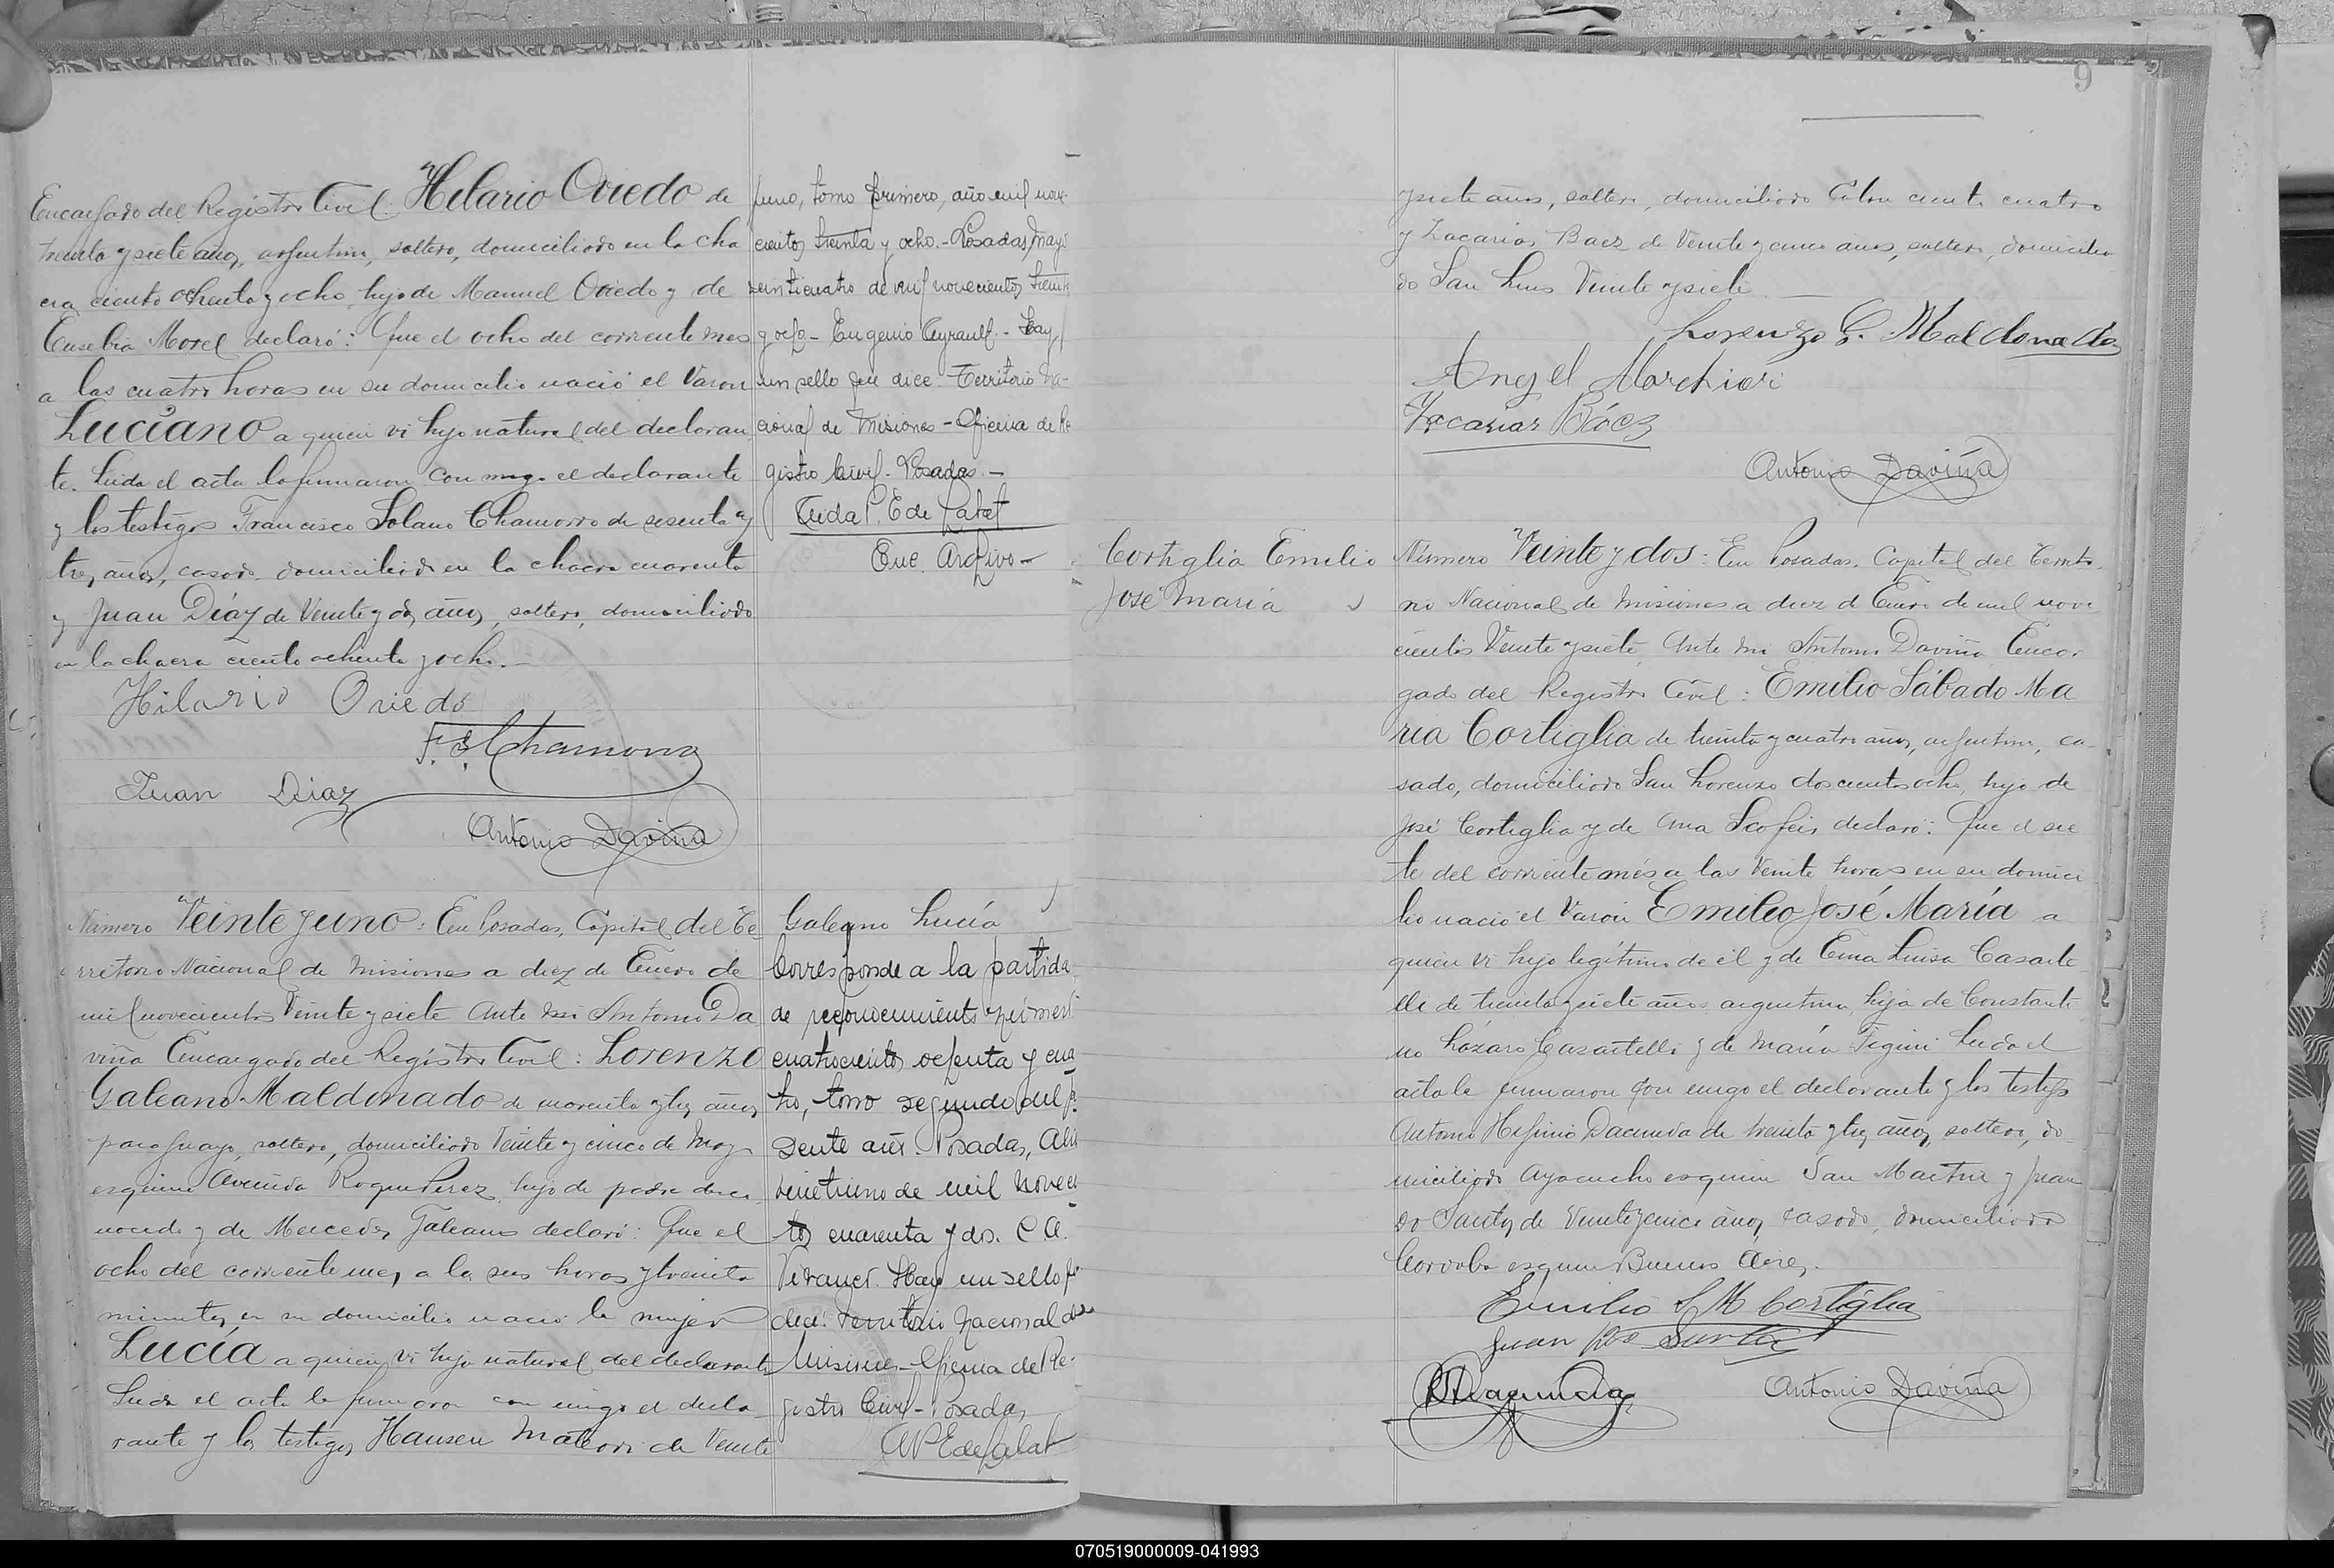 Encargado del Registro Civil: Hilario Oviedo de
treinta y siete años, argentino, soltero, domiciliado en la cha
cra ciento ochenta y ocho, hijo de Manuel Oviedo y de
Eusebia Morel declaró: Que el ocho del corriente mes
a las cuatro horas en su domicilio nació el Varon
Luciano a quien vi hijo natural del declaran
te. Leida el acta la firmaron con migo el declarante
y los testigos Francisco Solano Chamorro de sesenta y
tres años, casado, domiciliado en la chacra cuarenta
y Juan Díaz de Veinte y dos años, soltero, domiciliado
en la chacra ciento ochenta y ocho.—
Hilario Oviedo
F. S. Chamorro
Juan Diaz
Antonio Daviña
juno, tomo primero, año mil nove
cientos treinta y ocho.- Posadas, mayo
veinticuatro de mil novecientos treinta
y ocho - Eugenio - Hay
un sello que dice: Territorio Na-
cional de Misiones - Oficina de Re
gistro Civil - Posadas.-
E de Labat
Enc. Archivo-
Número Veinte y uno: En Posadas, Capital del Te
rritorio Nacional de Misiones a diez de Enero de
mil novecientos Veinte y siete Ante mi Antonio Da
viña Encargado del Registro Civil: Lorenzo
Galeano Maldonado de cuarenta y tres años,
paraguayo, soltero, domiciliado Veinte y cinco de Mayo
esquina Avenida Roque Perez, hijo de padre desco
nocido y de Mercedes Galeano declaró: Que el
ocho del corriente mes a las seis horas y treinta
minutos en su domicilio nació la mujer
Lucía a quien vi hija natural del declarante
Leida el acta la firmaron con migo el decla
rante y los testigos Hansen de Veinte
Galeano Lucía
Corresponde a la partida
de reconocimiento número
cuatrocientos ochenta y cua
tro, tomo segundo del pre
sente año. Posadas, Abril
veintiuno de mil novecien
tos cuarenta y dos. C. A.
Hay un sello que
dice: Territorio Nacional de
Misiones - Oficina de Re-
gistro Civil - Posadas
E de Labat
9
y siete años, soltero, domiciliado Colon ciento cuatro
y Zacarias Baez de Veinte y cinco años, soltero, domicilia
do San Luis Veinte y siete
Lorenzo G. Maldonado
Angel Marchiori
Zacarias Báez
Antonio Daviña
Cortiglia Emilio
José María
Número Veinte y dos: En Posadas, Capital del Territo
rio Nacional de Misiones a diez de Enero de mil nove
cientos Veinte y siete Ante mi Antonio Daviña Encar
gado del Registro Civil: Emilio Sábado Ma
ría Cortiglia de treinta y cuatro años, argentino, ca-
sado, domiciliado San Lorenzo doscientos ocho, hijo de
José Cortiglia y de Ana declaró: Que el sie
te del corriente mes a las Veinte horas en su domici
lio nació el Varon Emilio José María a
quien vi hijo legítimo de él y de Ema Luisa Casarte
lli de treinta y siete años argentina, hija de Constanti
no Lázaro Casartelli y de María Tigini Leida el
acta la firmaron con migo el declarante y los testigos
Antonio Higinio Dacunda de treinta y tres años, soltero, do
miciliado Ayacucho esquina San Martin y Juan
do Santos de Veinte y cinco años, casado, domiciliado
Cordoba esquina Buenos Aires.
Emilio S M Cortiglia
Juan
Antonio Daviña
070519000009-041993